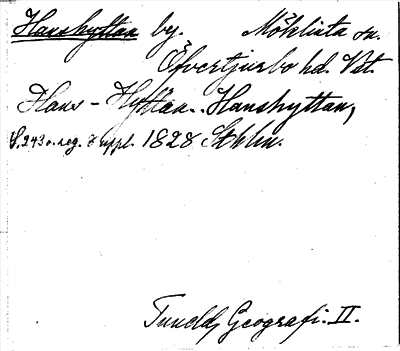 Hanshyttan by. Möklinta sn.
Öfvertjurbo hd. Vstm.
Hans-Hyttan. Hanshyttan,
S. 243 o. reg. 8 uppl. 1828 Sthlm.
Tuneld, Geografi. II.